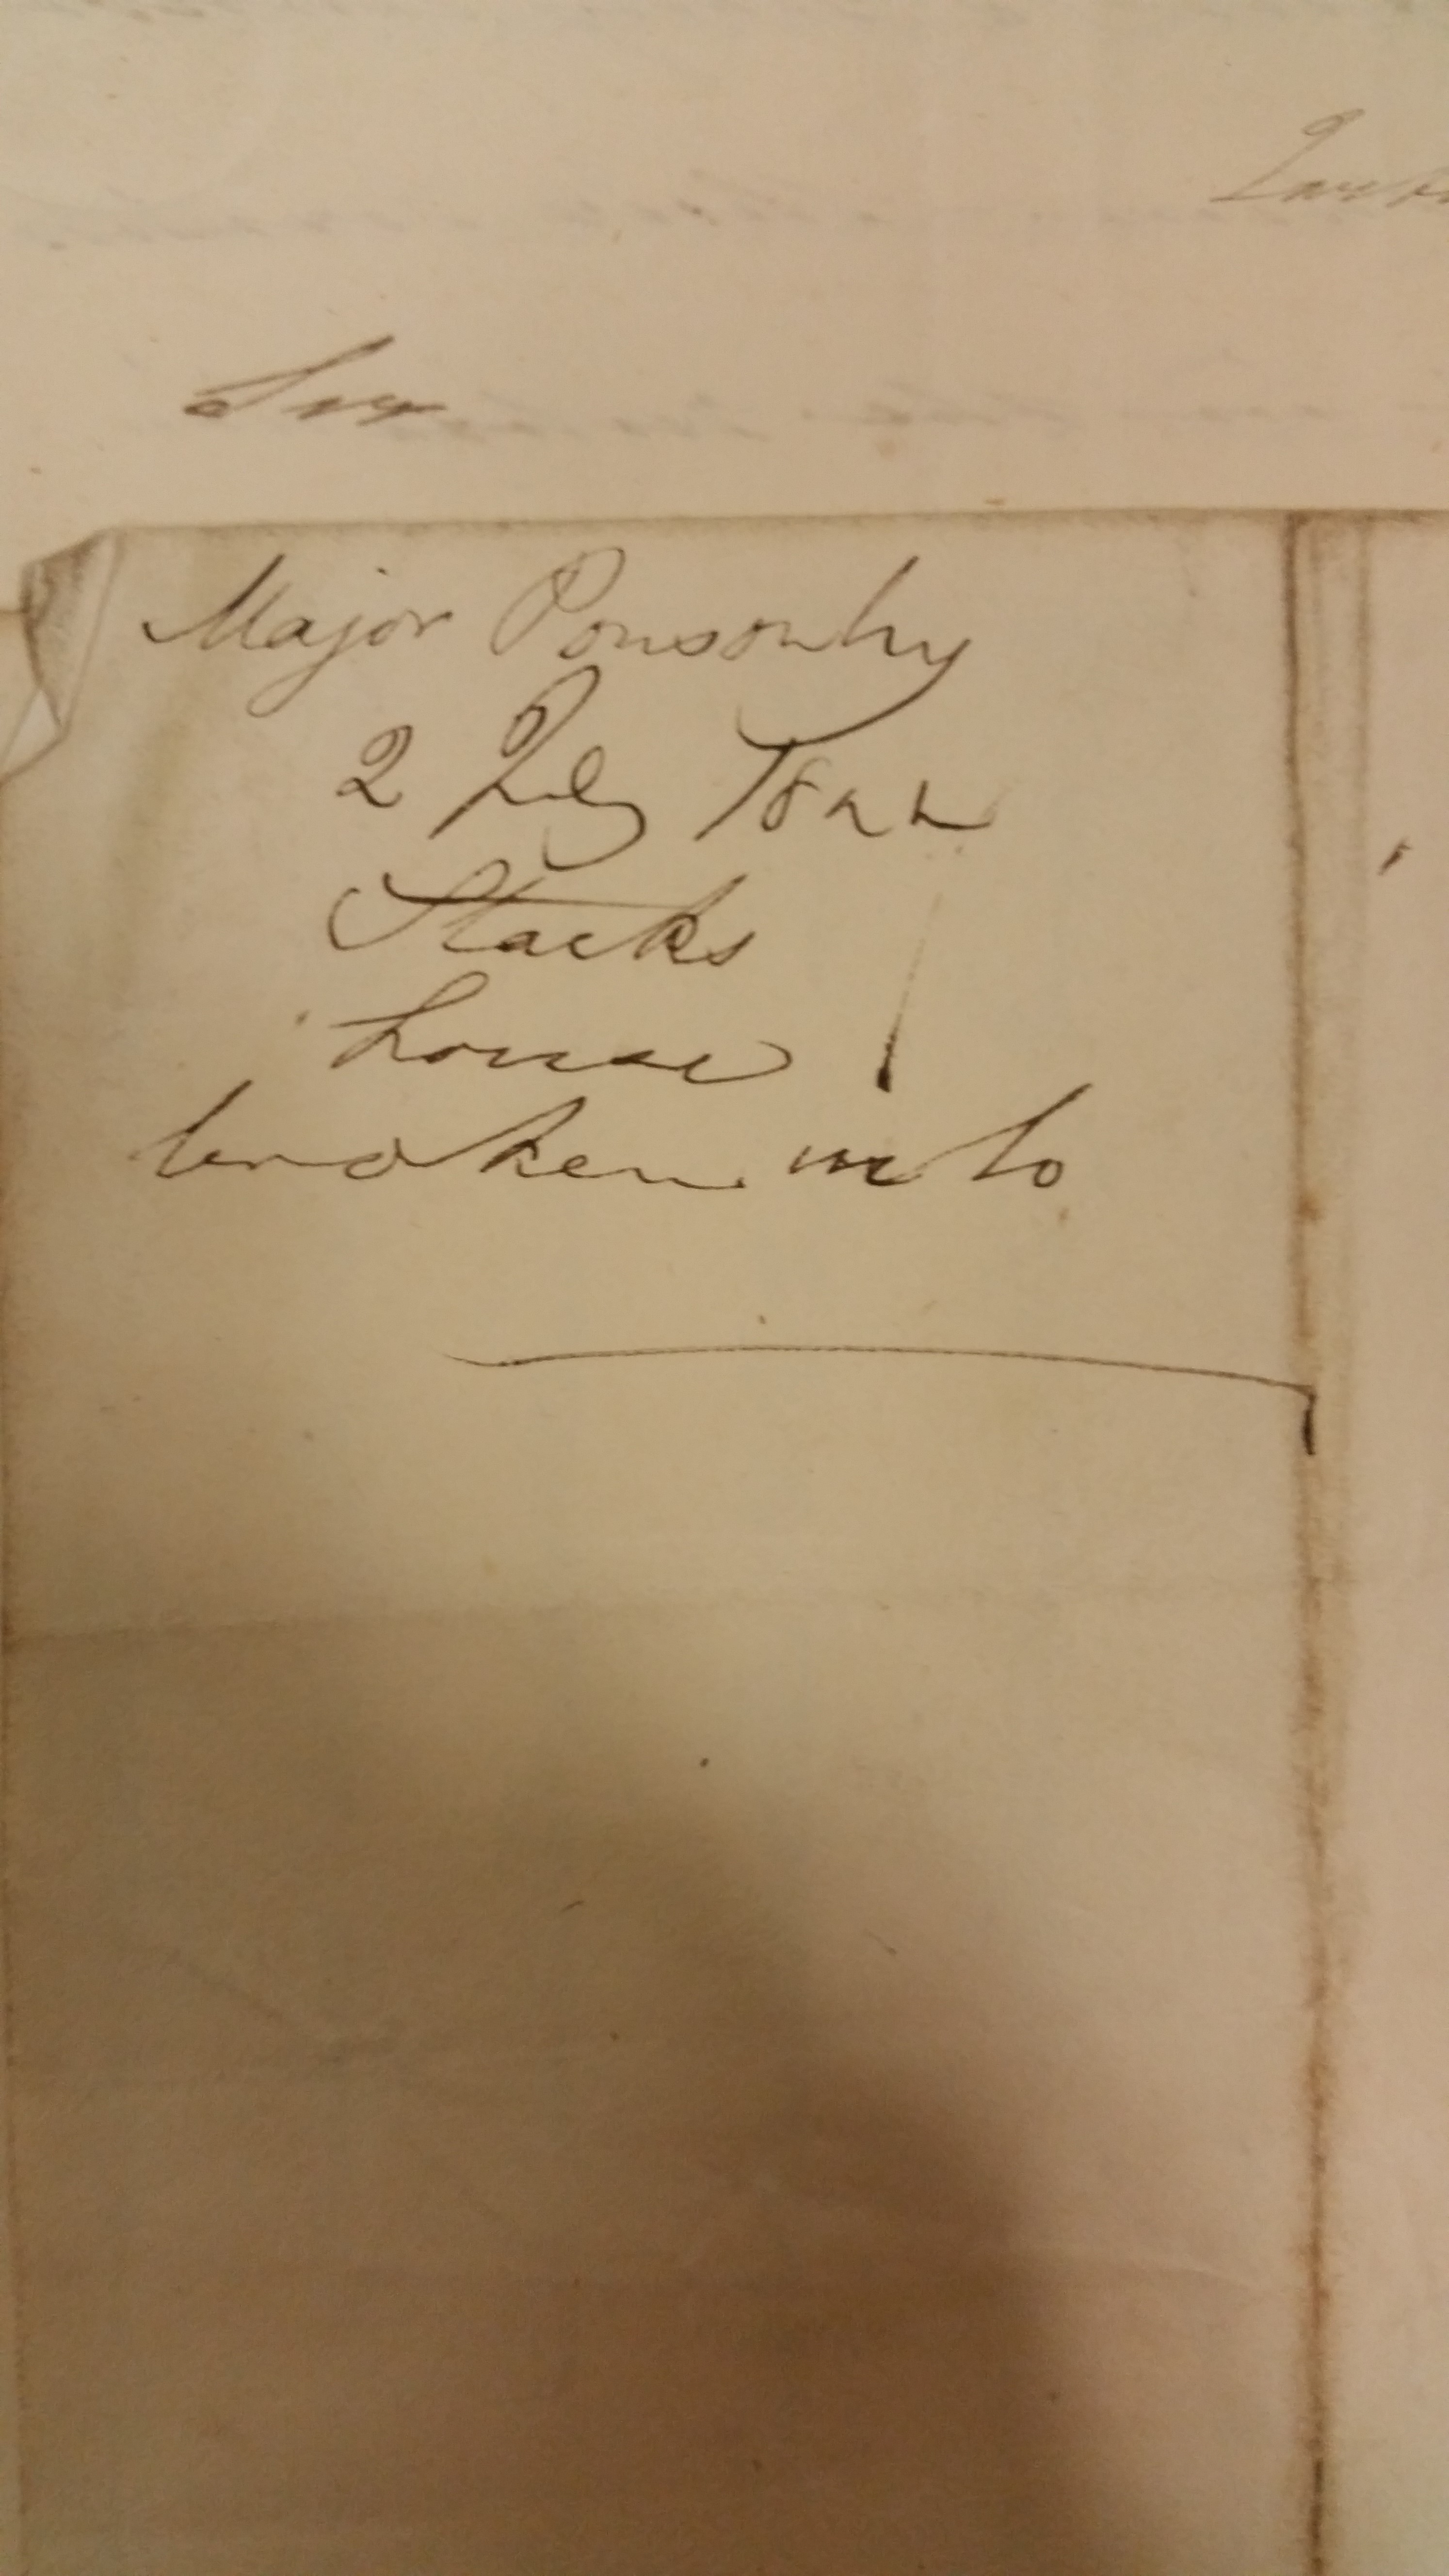 Sir
Major Ponsonby
2 July 1822
Stacks
house
broken into